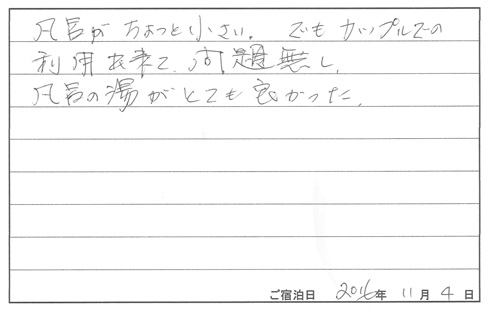 風呂がちょっと小さい。でもカップルでの
利用出来て、問題無し、
風呂の湯がとても良かった。
ご宿泊日 2016年 11月 4日